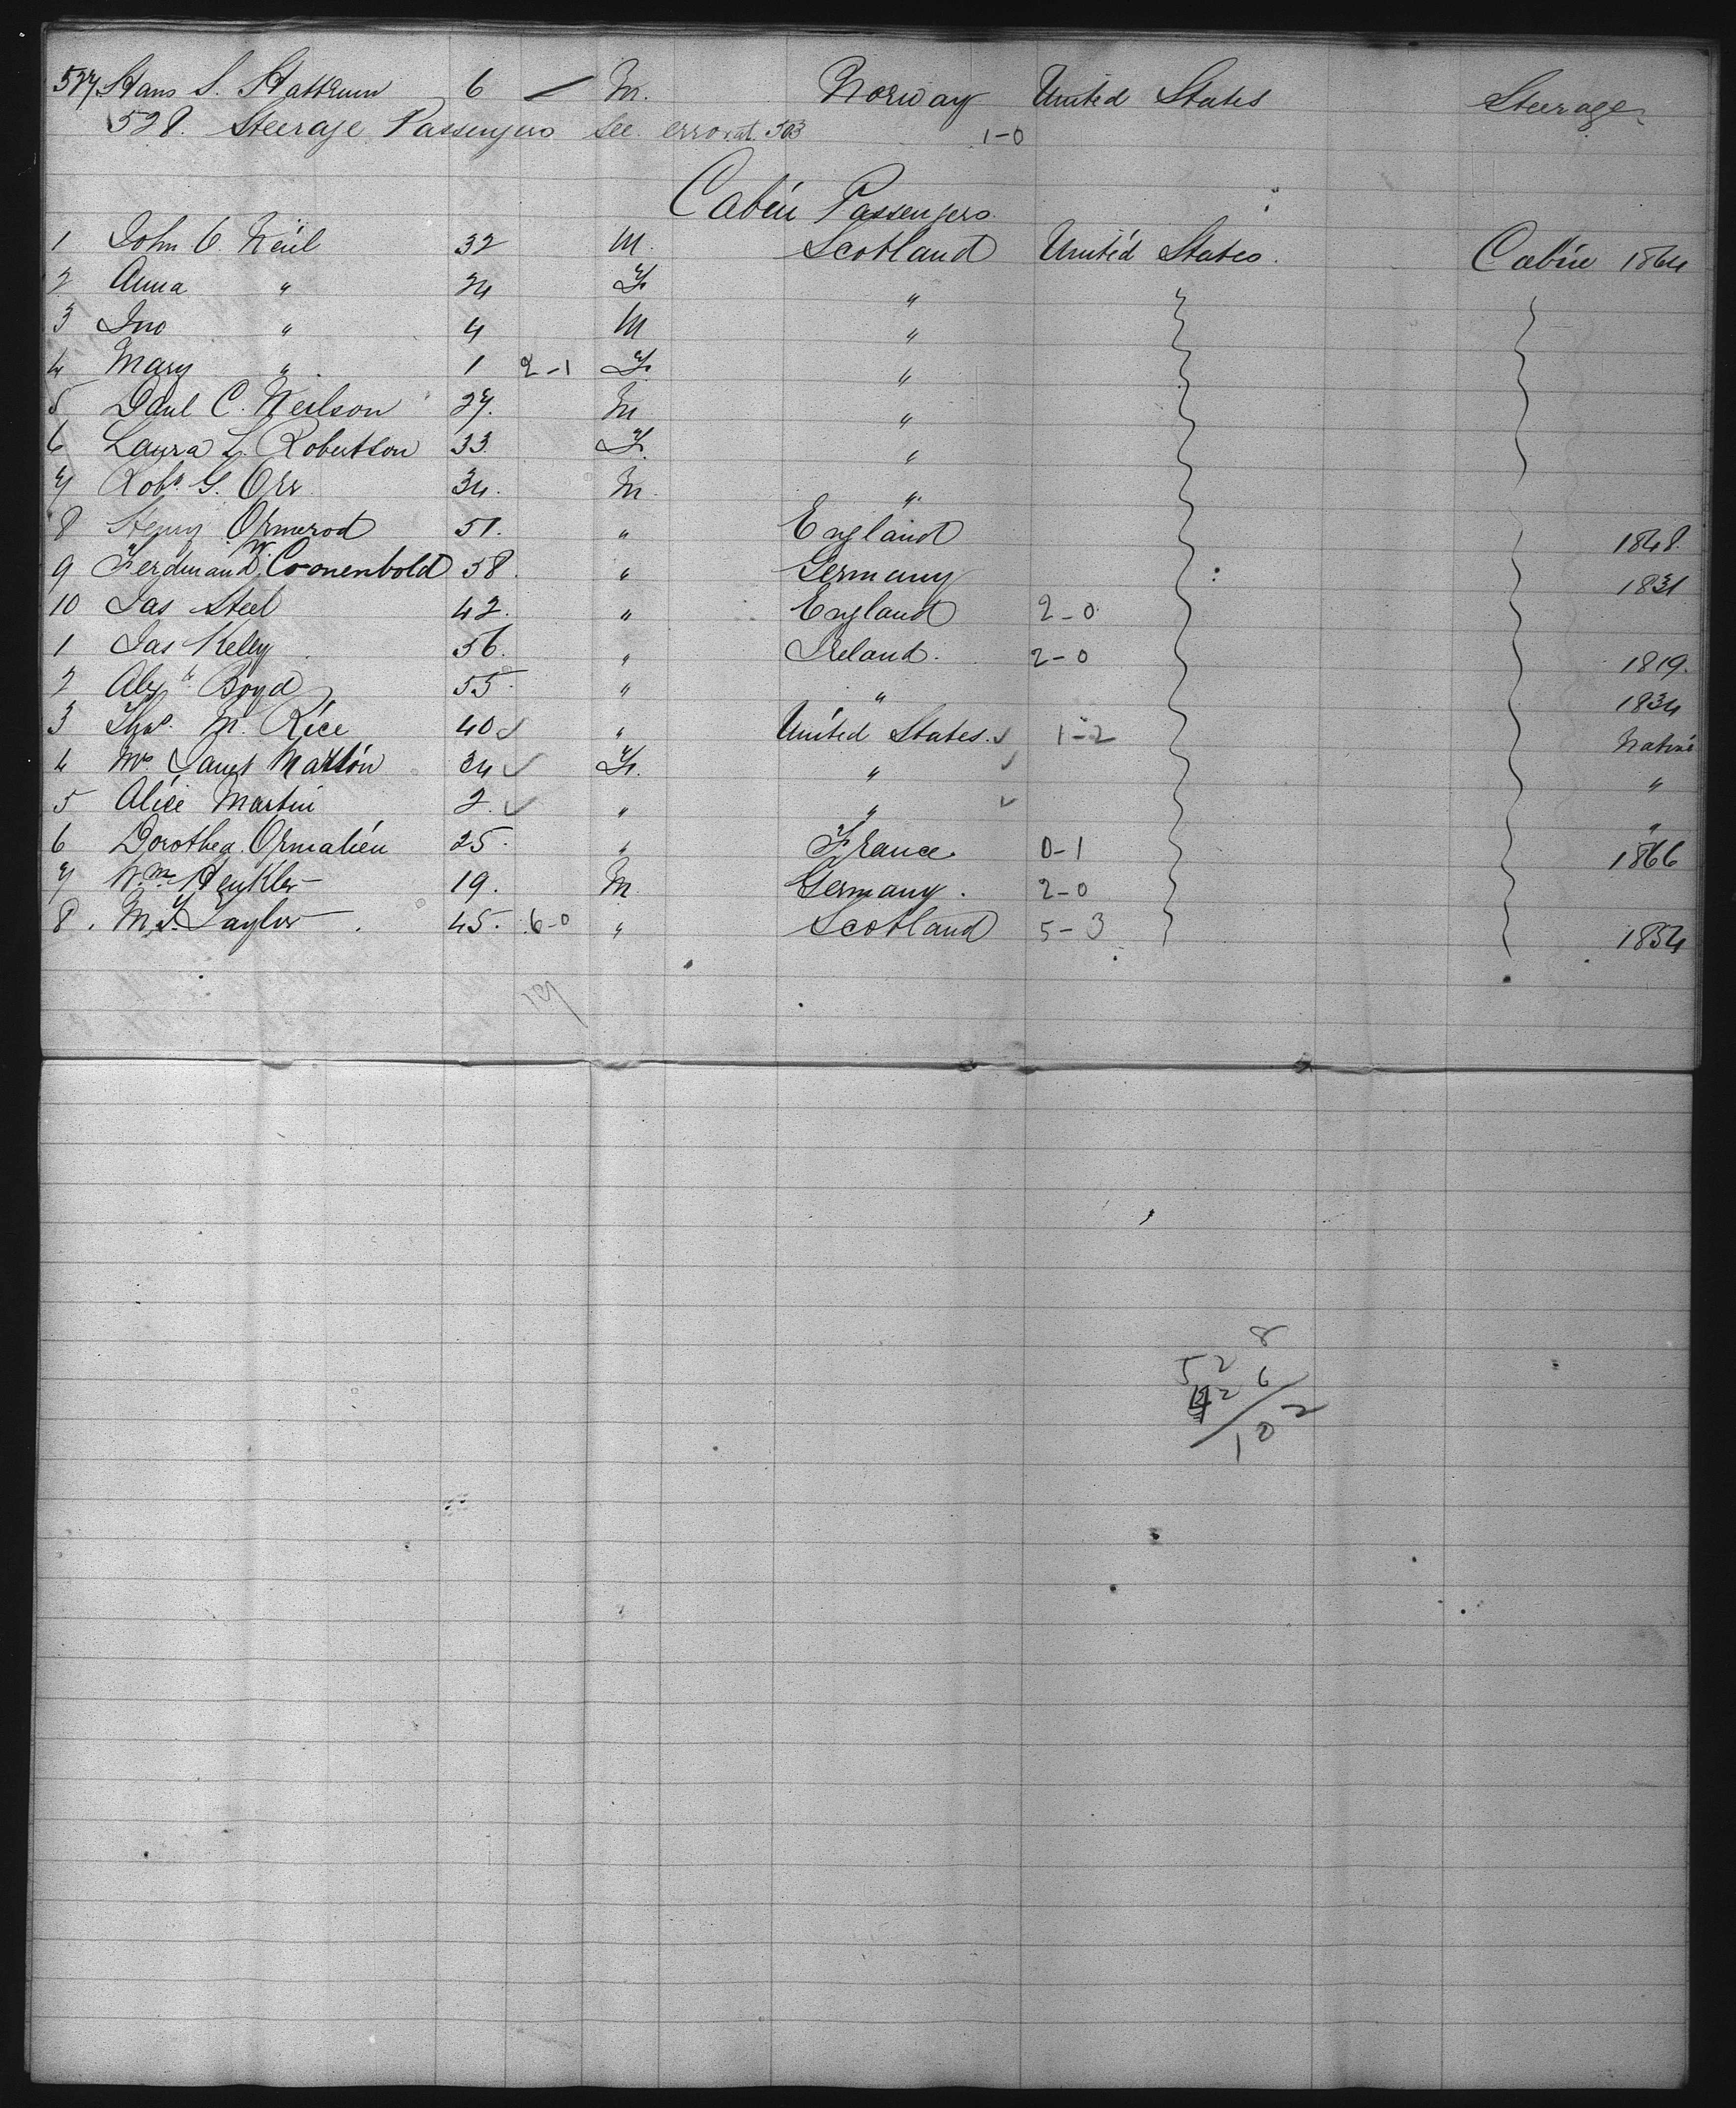 527 Hans S. Hattrum 6 — M. Norway United States Steerage
528. Steerage Passengers see error at 503 1-0
Cabin Passengers
1 John C Neil 32 M. Scotland United States. Cabin 1864
2 Anna " 24 F. "
3 Jno " 4 M "
4 Mary " 1 2-1 F. "
5 Danl C. Neilson 27. M "
6 Laura L. Robertson 33. F. "
7 Robt. G. Orr 34. M. "
8 Henry Ormerod 51. " England 1848.
9 Ferdinand W. Cronenbold 58. " Germany 1831
10 Jas Steel 42. " England 2-0
1 Jas Kelly 56. " Ireland. 2-0 1819.
2 Alexr Boyd 55. " " 1834
3 Thos. M. Rice 40 ✓ " United States. ✓ 1-2 Native
4 Mrs Janet Martin 34 ✓ F. " ✓ "
5 Alice Martin 2. ✓ " " ✓ "
6 Dorothea 25. " France. 0-1 1866
7 Wm Henkler 19. M Germany. 2-0
8. M. F. Taylor 45. 6-0 " Scotland 5-3 1854
8
52 6
2 2
10